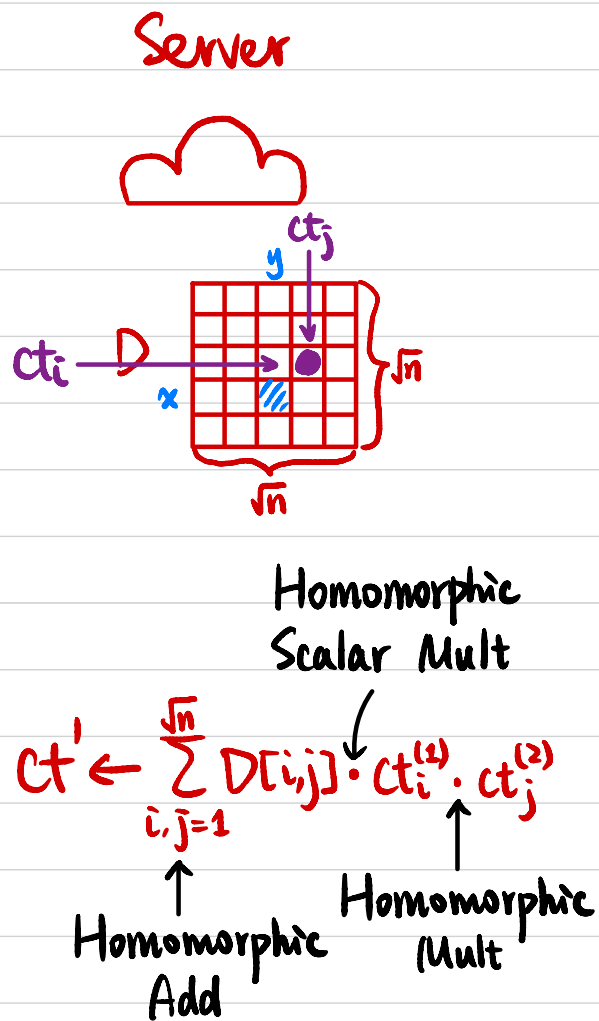 Server
ct_j
y
D
ct_i
x
√n
√n
Homomorphic
Scalar Mult
ct' ← ∑_{i,j=1}^{√n} D[i,j] · ct_i^{(1)} · ct_j^{(2)}
Homomorphic
Add
Homomorphic
Mult